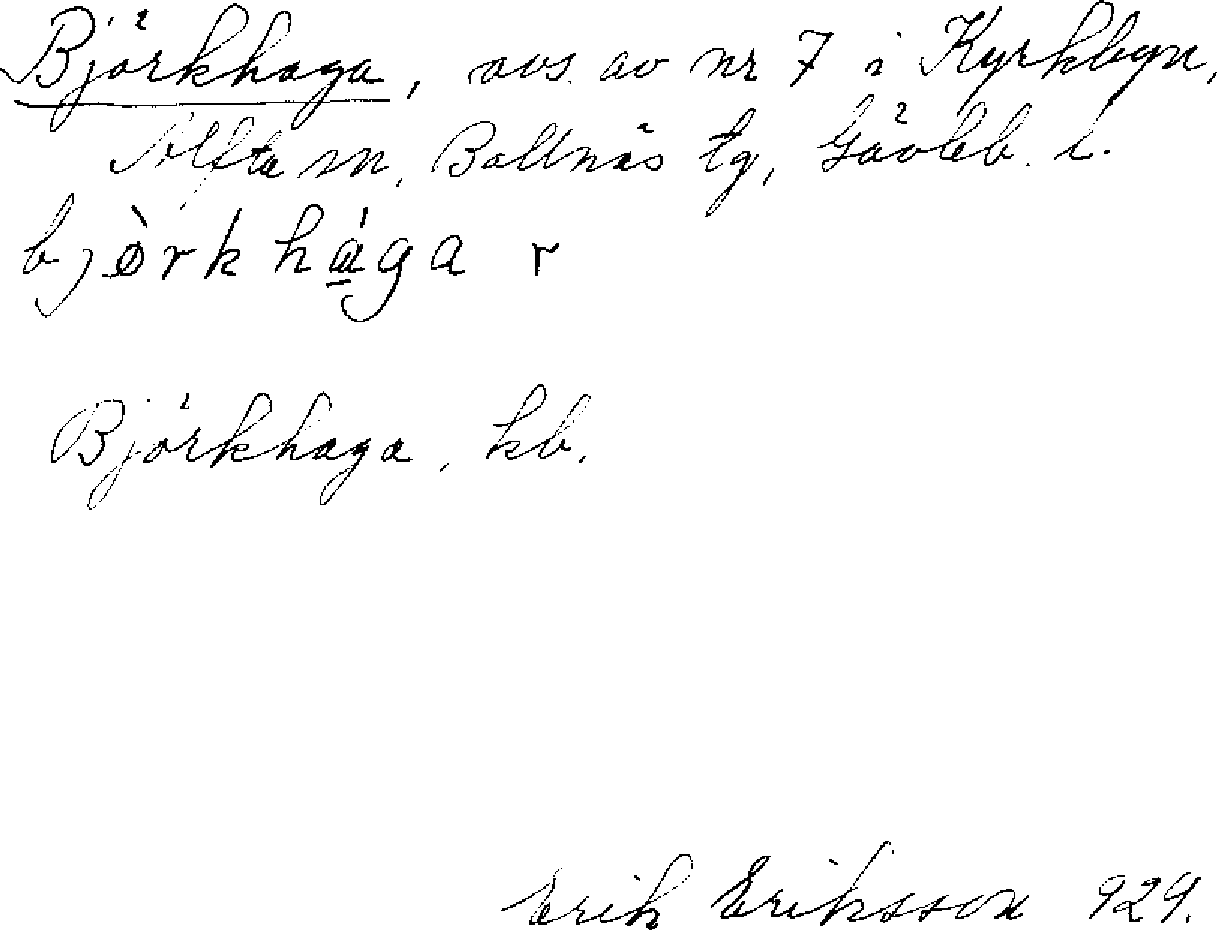 Björkhaga, avs. av nr 7 i Kyrkbyn,
Alfta sn, Bollnäs tg, Gävleb. l.
bjὸrkhága r
Björkhaga, kb.
Erik Eriksson 929.